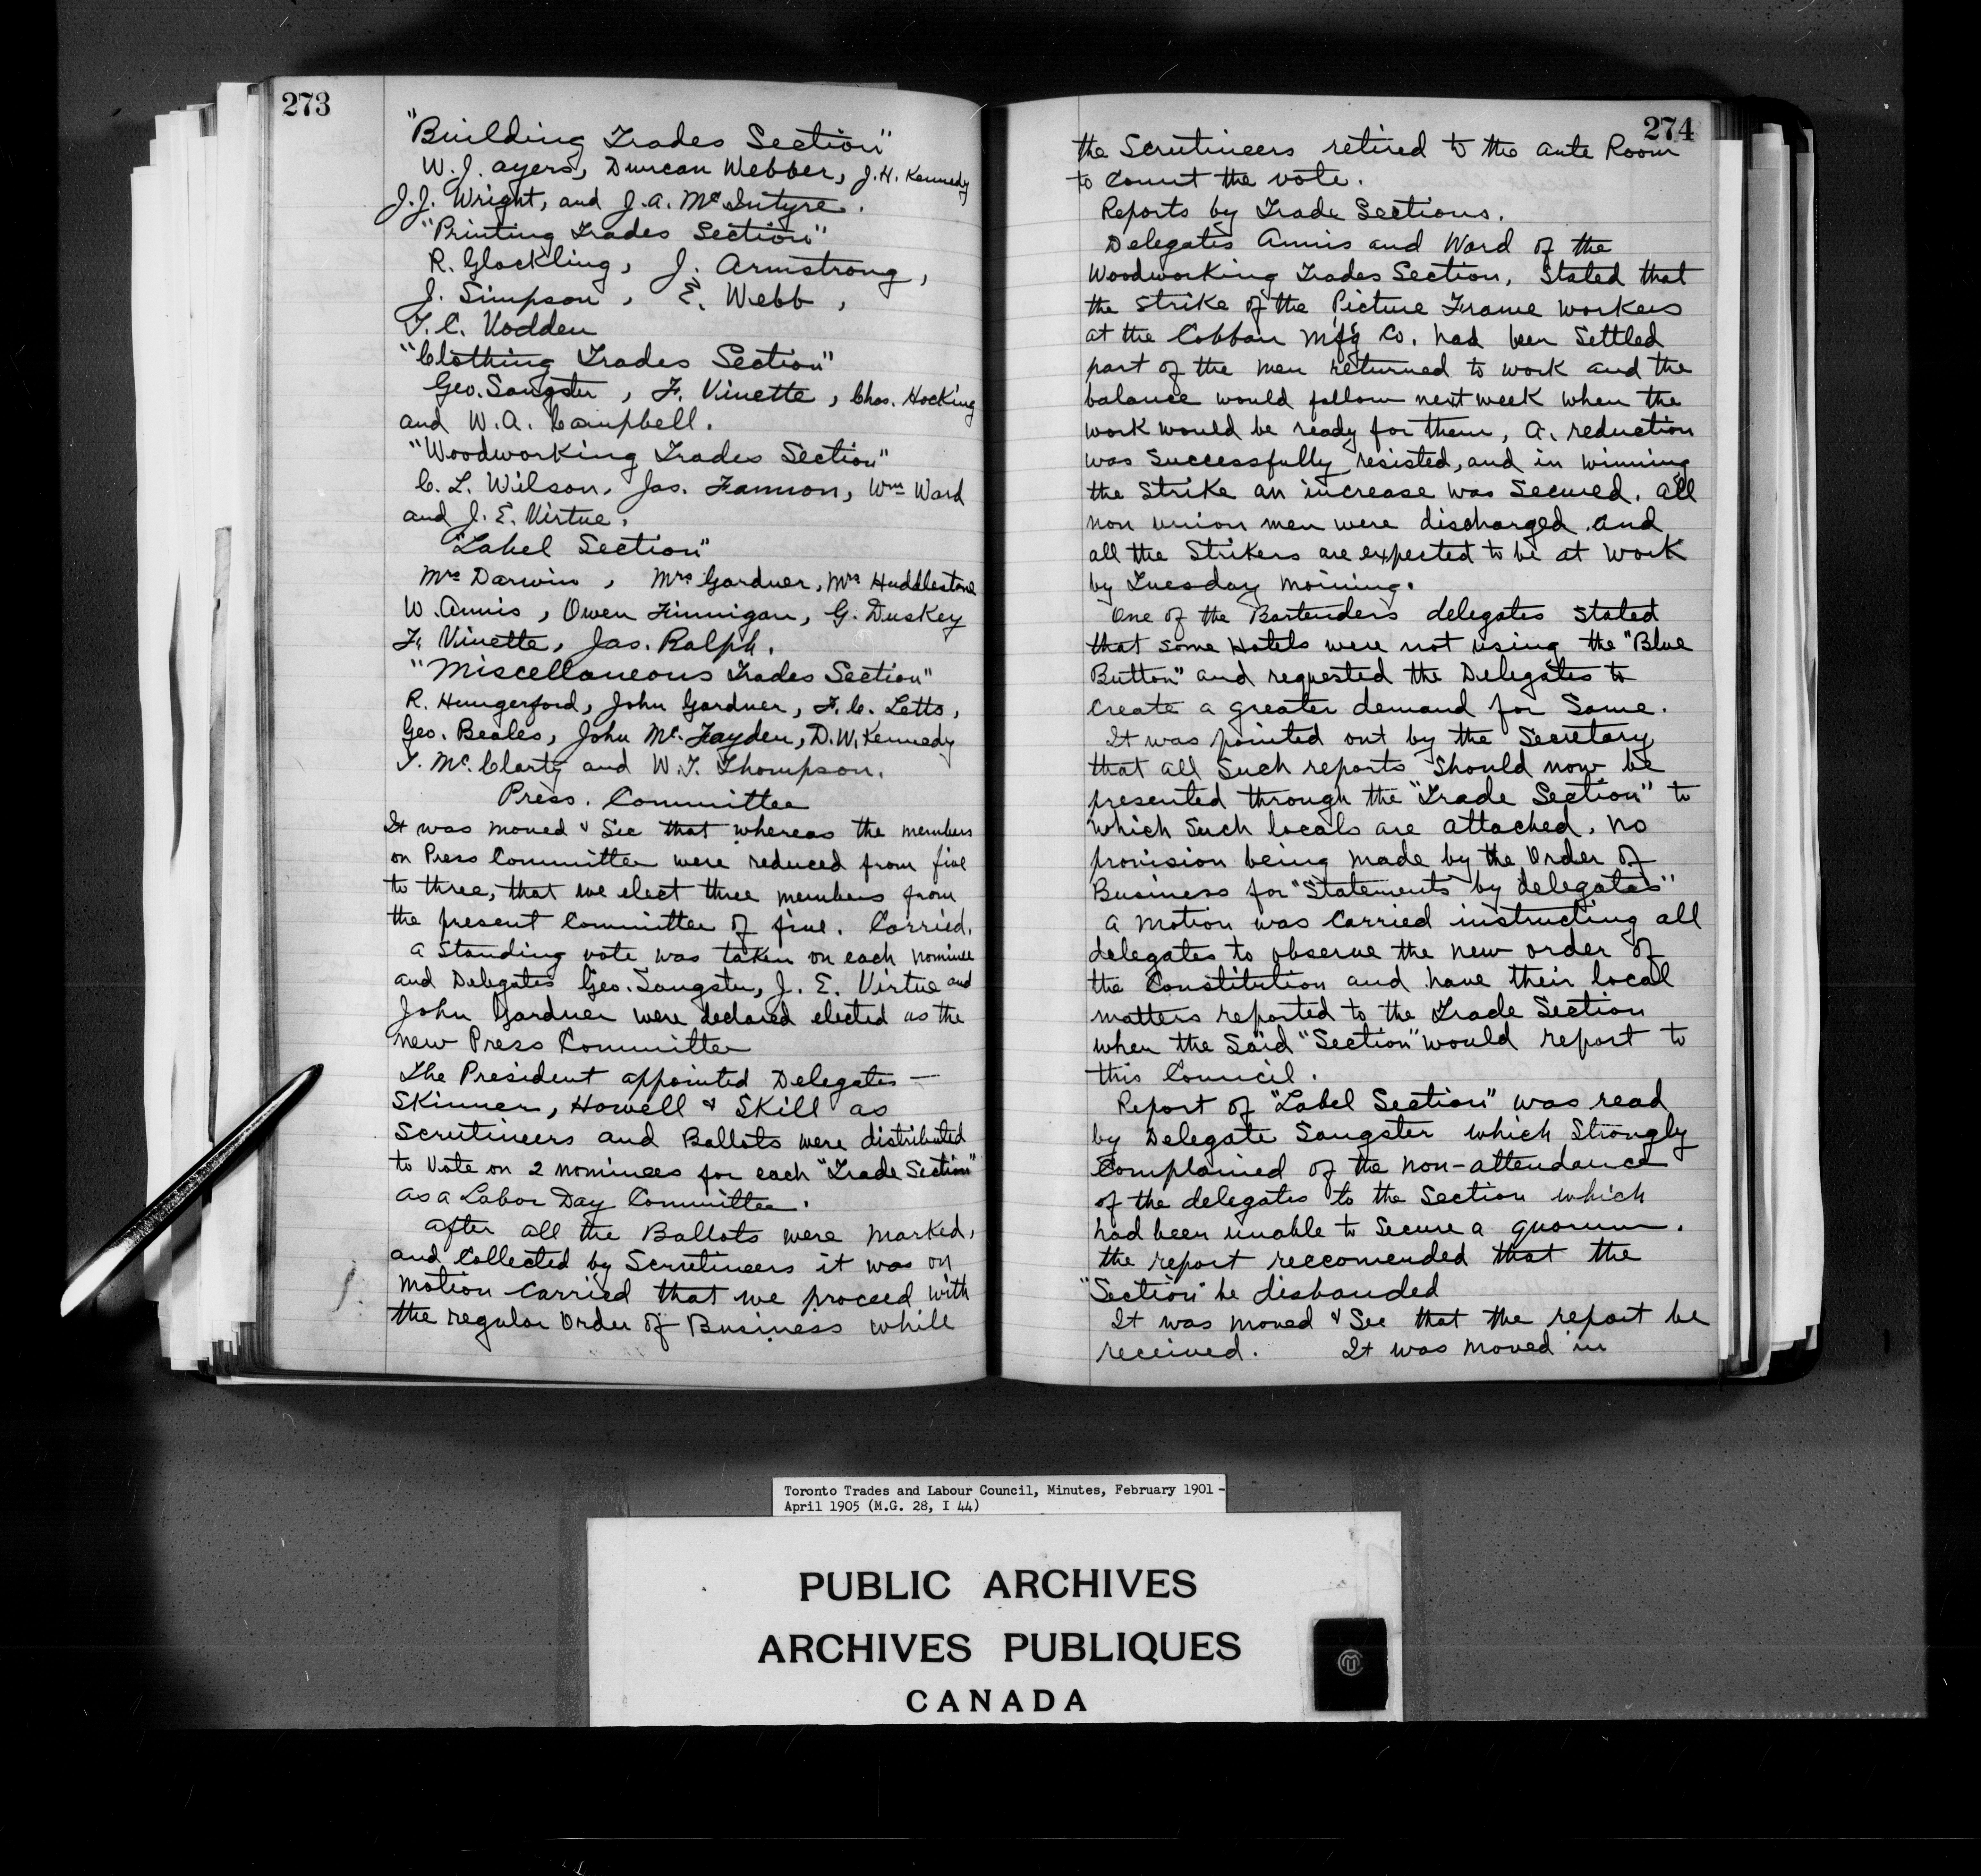 273
"Building Trades Section"
W. J. Ayers, Duncan Webber, J. H. Kennedy
J. J. Wright, and J. A. McIntyre.
"Printing Trades Section"
R. Glockling, J. Armstrong,
J. Simpson, E. Webb,
T. C. Vodden
"Clothing Trades Section"
Geo. Sangster, F. Vinette, Chas. Hocking
and W. A. Campbell.
"Woodworking Trades Section"
C. L. Wilson, Jas. Fannon, Wm Ward
and J. E. Virtue.
"Label Section"
Mrs Darwin, Mrs Gardner, Mrs Huddlestone
W. Annis, Owen Finnigan, G. Duskey
F. Vinette, Jas. Ralph.
"Miscellaneous Trades Section"
R. Hungerford, John Gardner, F. C. Letts,
Geo. Beales, John Mc. Fayden, D. W. Kennedy
T. Mc. Clarty and W. T. Thompson.
Press. Committee
It was moved & Sec that whereas the members
on Press Committee were reduced from five
to three, that we elect three members from
the present Committee of five. Carried.
a Standing vote was taken on each nominee
and Delegates Geo. Sangster, J. E. Virtue and
John Gardner were declared elected as the
new Press Committee
The President appointed Delegates —
Skinner, Howell & Skill as
Scrutineers and Ballots were distributed
to Vote on 2 nominees for each "Trade Section"
as a Labor Day Committee.
after all the Ballots were marked,
and Collected by Scrutineers it was on
motion Carried that we proceed with
the regular Order of Business while
274
the Scrutineers retired to the ante Room
to Count the vote.
Reports by Trade Sections.
Delegates Annis and Ward of the
Woodworking Trades Section, Stated that
the Strike of the Picture Frame workers
at the Cobban Mfg Co. had been Settled
part of the men returned to work and the
balance would follow next week when the
work would be ready for them, a. reduction
was Successfully resisted, and in winning
the Strike an increase was Secured. all
non union men were discharged and
all the Strikers are expected to be at work
by Tuesday morning.
One of the Bartenders delegates Stated
that some Hotels were not using the "Blue
Button" and requested the Delegates to
create a greater demand for Same.
It was pointed out by the Secretary
that all Such reports Should now be
presented through the "Trade Section" to
which Such locals are attached. no
provision being made by the Order of
Business for "Statements by delegates"
a motion was Carried instructing all
delegates to observe the new order of
the Constitution and have their local
matters reported to the Trade Section
when the Said "Section" would report to
this Council.
Report of "Label Section" was read
by Delegate Sangster which Strongly
Complained of the non-attendance
of the delegates to the Section which
had been unable to Secure a quorum.
the report reccomended that the
"Section" be disbanded
It was moved & Sec that the report be
received. It was moved in
Toronto Trades and Labour Council, Minutes, February 1901 -
April 1905 (M.G. 28, I 44)
PUBLIC ARCHIVES
ARCHIVES PUBLIQUES
CANADA